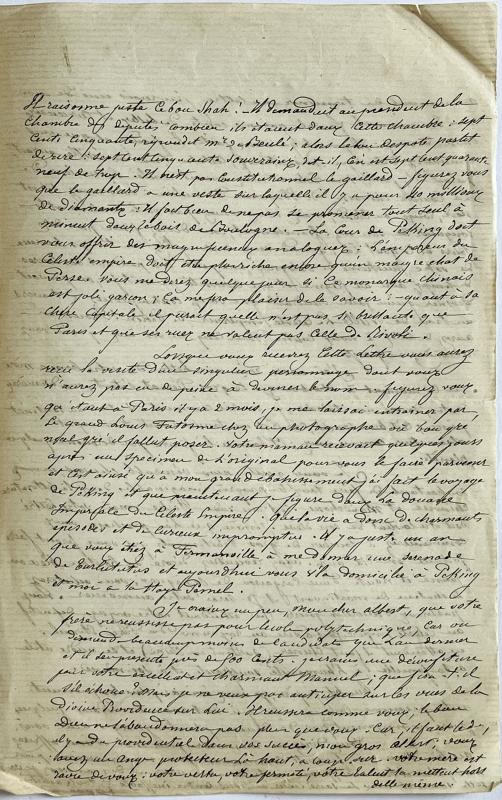 Il raisonne juste ce bon Shah ! Il demandait au président de la
chambre des députés combien ils étaient dans cette chambre : sept
cents cinquante, répondit mr de ; alors le bon despote partit
de rire : sept cent cinquante souverains, dit-il, c'en est sept cent quarante
neuf de trop. Il n'est pas constitutionnel le gaillard - figurez vous
que le gaillard a une veste sur laquelle il y a pour 20 millions
de diamants : il fait bien de ne pas se promener tout seul à
minuit dans le bois de Boulogne. - La Cour de Péking doit
vous offrir des magnificences analogues ; L'empereur du
Céleste empire doit être plus riche encore qu'un maigre chat de
Perse. Vous me direz quelque jour si ce monarque chinois
est joli garçon ; ça me fera plaisir de le savoir : - quant à sa
chère Capitale il paraît qu'elle n'est pas si brillante que
Paris et que ses rues ne valent pas celle de Rivoli.
Lorsque vous recevrez cette lettre vous aurez
reçu la visite d'un singulier personnage dont vous
n'aurez pas eu de peine à deviner le nom. figurez vous
qu'étant à Paris il y a 2 mois, je me laissai entraîner par
Le grand Louis chez un photographe où bon gré
mal gré il fallut poser. Votre maman recevait quelques jours
après un specimen de l'original pour vous le faire parvenir
et c'est ainsi qu'à mon grand ébahissement j'ai fait le voyage
de Péking et que maintenant je figure dans la douane
Impériale du Céleste Empire. Que la vie a donc de charmants
épisodes et de curieux impromptus. Il y a juste un an
que vous étiez à Fermanville à me donner une sérénade
et aujourd'hui vous élu domicile à Péking
et moi à la Haye Pesnel.
Je crains un peu, mon cher albert, que votre
frère ne réussisse pas pour l'école polytechnique, car on
demande beaucoup moins de candidats que l'an dernier
et il s'en présente près de 500 cents. je crains une déconfiture
pour votre excellent et charmant Manuel ; que s'il
échoue : mais je ne veux pas anticiper sur les vues de la
divine Providence sur lui. Il réussira comme vous, le bon
Dieu ne l'abandonnera pas plus que vous. Car, il faut le dire,
il y a du providentiel dans vos succès, mon gros albert, vous
avez un ange protecteur là haut, à coup sûr. Votre mère est
ravie de vous : votre vertu, votre fermeté, votre talent la mettent hors
d'elle même.